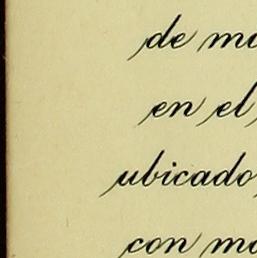 de
en el
ubicado,
con